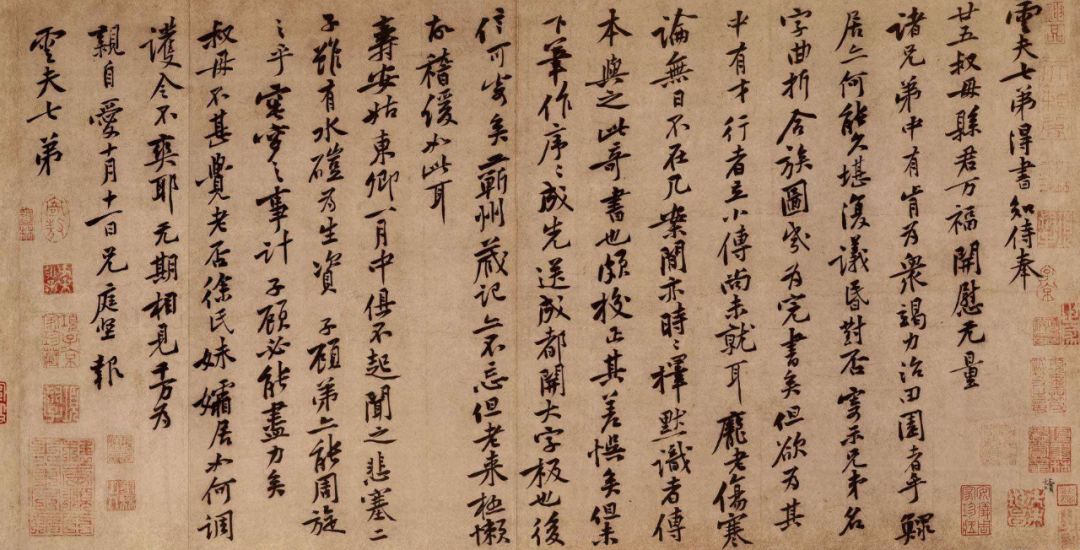 雲夫七弟得書知侍奉
廿五叔母縣君万福開慰无量
諸兄弟中有肯為衆竭力治田園者乎鰥
居亦何能久堪復議昏對否寄示兄弟名
字曲折合族圖幾為完書矣但欲為其
中有才行者立小傳尚未就耳龐老傷寒
論無日不在几案閒亦時〻擇默識者傳
本與之此奇書也頗校正其差悮矣但未
下筆作序〻成先送成都開大字板也後
信可寄矣蘄州藏記亦不忘但老来極懶
故稽緩如此耳
壽安姑東卿一月中俱不起聞之悲塞二
子雖有水磑為生資子顧弟亦能周旋
之乎窀穸之事計子顧必能盡力矣
叔母不甚覺老否徐氏妹孀居如何調
護令不爽耶无期相見千万為
親自愛十月十一日兄庭堅報
雲夫七弟